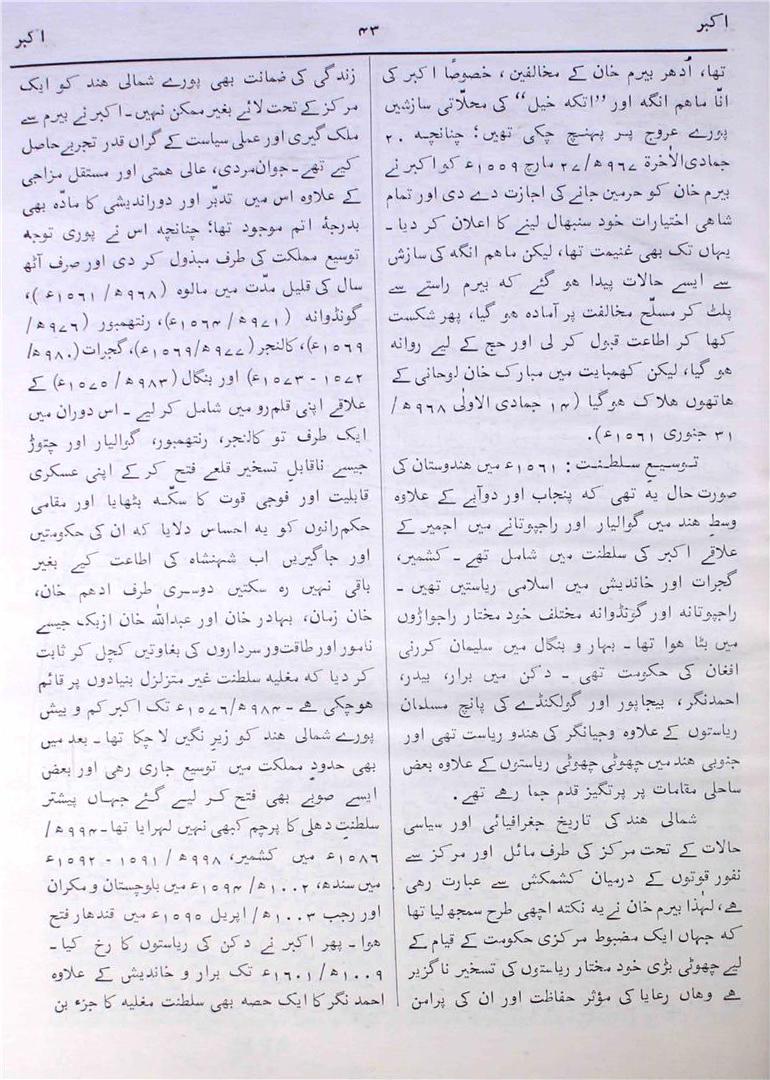 اکبر
۴۳
اکبر
تھا، اُدھر بیرم خان کے مخالفین، خصوصًا اکبر کی
انّا ماھم انگہ اور ”اتکہ خیل“ کی محلّاتی سازشیں
پورے عروج پر پہنچ چکی تھیں؛ چنانچہ ۲۰
جمادی الاُخرۃ ۹۶۷ھ/ ۲۷ مارچ ۱۵۵۹ء کو اکبر نے
بیرم خان کو حرمین جانے کی اجازت دے دی اور تمام
شاھی اختیارات خود سنبھال لینے کا اعلان کر دیا۔
یہاں تک بھی غنیمت تھا، لیکن ماھم انگہ کی سازش
سے ایسے حالات پیدا ھو گئے کہ بیرم راستے سے
پلٹ کر مسلّح مخالفت پر آمادہ ھو گیا، پھر شکست
کھا کر اطاعت قبول کر لی اور حج کے لیے روانہ
ھو گیا، لیکن کھمبایت میں مبارک خان لوحانی کے
ھاتھوں ھلاک ھوگیا (۱۴ جمادی الاولٰی ۹۶۸ھ/
۳۱ جنوری ۱۵۶۱ء)۔
توسیعِ سلطنت : ۱۵۶۱ء میں ھندوستان کی
صورت حال یہ تھی کہ پنجاب اور دوآبے کے علاوہ
وسطِ ھند میں گوالیار اور راجپوتانے میں اجمیر کے
علاقے اکبر کی سلطنت میں شامل تھے۔ کشمیر،
گجرات اور خاندیش میں اسلامی ریاستیں تھیں۔
راجپوتانہ اور گونڈوانہ مختلف خود مختار راجواڑوں
میں بٹا ھوا تھا۔ بہار و بنگال میں سلیمان کررنی
افغان کی حکومت تھی۔ دکن میں برار، بیدر،
احمدنگر، بیجاپور اور گولکنڈے کی پانچ مسلمان
ریاستوں کے علاوہ وجیانگر کی ھندو ریاست تھی اور
جنوبی ھند میں چھوٹی چھوٹی ریاستوں کے علاوہ بعض
ساحلی مقامات پر پرتگیز قدم جما رھے تھے۔
شمالی ھند کی تاریخ جغرافیائی اور سیاسی
حالات کے تحت مرکز کی طرف مائل اور مرکز سے
نفور قوتوں کے درمیان کشمکش سے عبارت رھی
ھے، لہٰذا بیرم خان نے یہ نکتہ اچھی طرح سمجھ لیا تھا
کہ جہاں ایک مضبوط مرکزی حکومت کے قیام کے
لیے چھوٹی بڑی خود مختار ریاستوں کی تسخیر ناگزیر
ھے وھاں رعایا کی مؤثر حفاظت اور ان کی پرامن
زندگی کی ضمانت بھی پورے شمالی ھند کو ایک
مرکز کے تحت لائے بغیر ممکن نہیں۔ اکبر نے بیرم سے
ملک گیری اور عملی سیاست کے گراں قدر تجربے حاصل
کیے تھے۔ جوان مردی، عالی ھمتی اور مستقل مزاجی
کے علاوہ اس میں تدبّر اور دوراندیشی کا مادّہ بھی
بدرجۂ اتم موجود تھا؛ چنانچہ اس نے پوری توجہ
توسیع مملکت کی طرف مبذول کر دی اور صرف آٹھ
سال کی قلیل مدّت میں مالوہ (۹۶۸ھ/ ۱۵۶۱ء)،
گونڈوانہ (۹۷۱ھ/ ۱۵۶۴ء)، رنتھمبور (۹۷۶ھ/
۱۵۶۹ء)، کالنجر (۹۷۷ھ/۱۵۶۹ء)، گجرات (۹۸۰ھ/
۱۵۷۲ - ۱۵۷۳ء) اور بنگال (۹۸۳ھ/ ۱۵۷۵ء) کے
علاقے اپنی قلم رو میں شامل کر لیے۔ اس دوران میں
ایک طرف تو کالنجر، رنتھمبور، گوالیار اور چتوڑ
جیسے ناقابلِ تسخیر قلعے فتح کر کے اپنی عسکری
قابلیت اور فوجی قوت کا سکّہ بٹھایا اور مقامی
حکم رانوں کو یہ احساس دلایا کہ ان کی حکومتیں
اور جاگیریں اب شہنشاہ کی اطاعت کیے بغیر
باقی نہیں رہ سکتیں دوسری طرف ادھم خان،
خان زمان، بہادر خان اور عبداللہ خان ازبک جیسے
نامور اور طاقت ور سرداروں کی بغاوتیں کچل کر ثابت
کر دیا کہ مغلیہ سلطنت غیر متزلزل بنیادوں پر قائم
ھوچکی ھے۔ ۹۸۴ھ/۱۵۷۶ء تک اکبر کم و بیش
پورے شمالی ھند کو زیرِ نگیں لا چکا تھا۔ بعد میں
بھی حدودِ مملکت میں توسیع جاری رھی اور بعض
ایسے صوبے بھی فتح کر لیے گئے جہاں پیشتر
سلطنتِ دھلی کا پرچم کبھی نہیں لہرایا تھا۔ ۹۹۴ھ/
۱۵۸۶ء میں کشمیر، ۹۹۸ھ/ ۱۵۹۱ - ۱۵۹۲ء
میں سندھ، ۱۰۰۲ھ/ ۱۵۹۴ء میں بلوچستان و مکران
اور رجب ۱۰۰۳ھ/ اپریل ۱۵۹۵ء میں قندھار فتح
ھوا۔ پھر اکبر نے دکن کی ریاستوں کا رخ کیا۔
۱۰۰۹ھ/۱۶۰۱ء تک برار و خاندیش کے علاوہ
احمد نگر کا ایک حصہ بھی سلطنت مغلیہ کا جزء بن